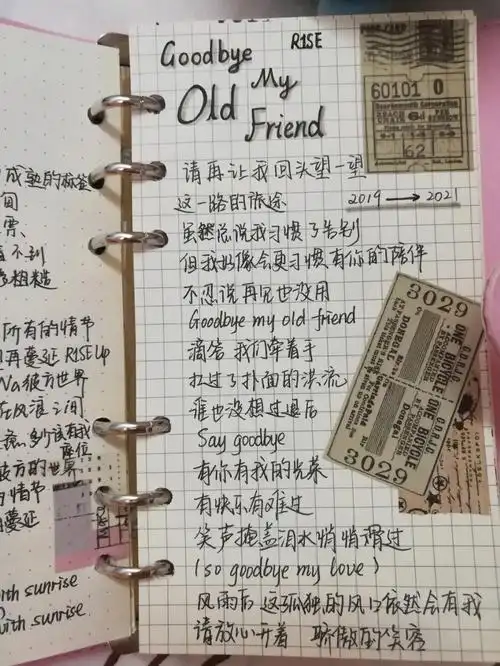 成熟的标签
票、
看不到
粗糙
所有的情节
再蔓延 R1SE Up
Na彼方世界
在风浪之间
座位
彼方的世界
情节
蔓延
with sunrise
with sunrise
Goodbye R1SE
My
Old
Friend
请再让我回头望一望
这一路的旅途 2019 → 2021
虽然总说我习惯了告别
但我好像会更习惯有你的陪伴
不忍说再见也没用
Goodbye my old friend
滴答 我们牵着手
扛过了扑面的洪流
谁也没想过退后
Say goodbye
有你有我的光荣
有快乐有难过
笑声掩盖泪水悄悄滑过
(so goodbye my love)
风雨后 这孤独的风口依然会有我
请放心开着 骄傲的笑容
60101 0
Bournemouth Corporation
BEACH CHAIR 6d PER SESSION
62
3029
C.D.R.J.C.
ONE BICYCLE
DONEGAL
3029
C.D.R.J.C.
ONE BICYCLE